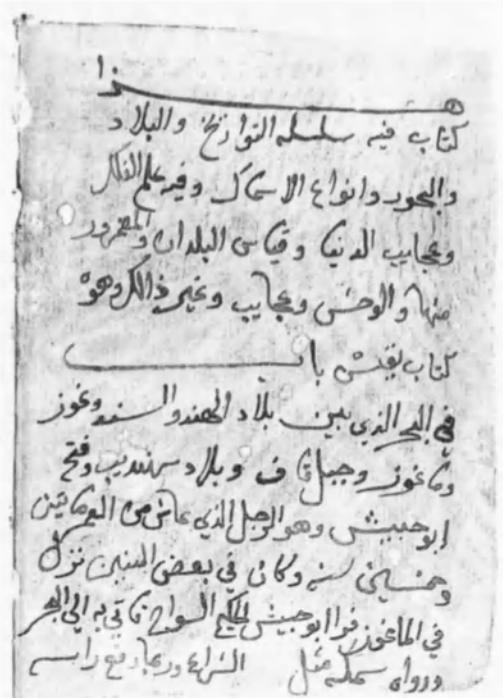 هذا
كتاب فيه سلسله التواريخ والبلاد
والبحور وانواع الاسماك وفيه علم الفلك
وعجايب الدنيا وقياس البلدان والمعمور
منها والوحش وعجايب وغير ذالك وهو
كتاب نفيس باب
في البحر الذي بين بلاد الهند والسند وغوز
وماغوز وجبل قاف وبلاد سرنديب وفتح
ابو حبيش وهو الرجل الذي عاش من العمر ماتين
وخمسين سنه وكان في بعض السنين نزل
في الماغوز ابو حبيش الحكيم السواح الي البحر
ورواه سمكه مثل الشراع وربما رفع راسه